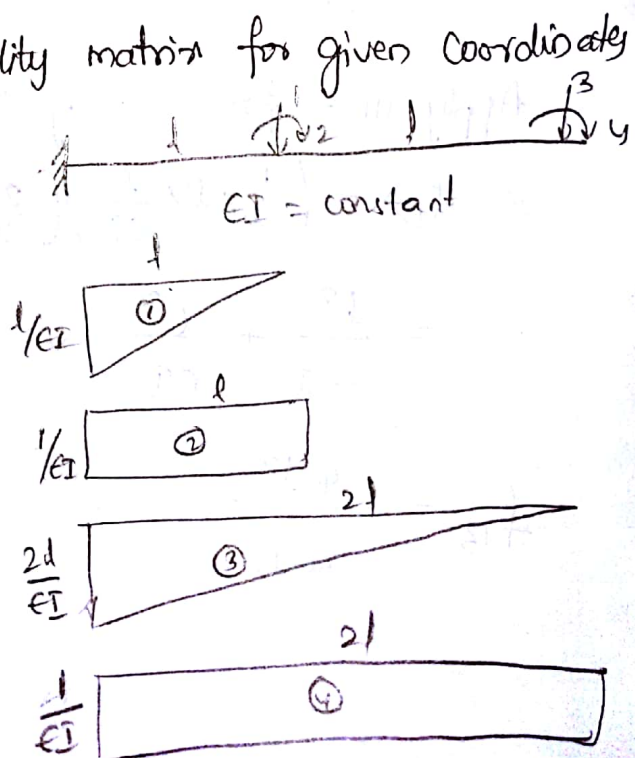 lity matrix for given coordinates
l 1 2 l 3 4
EI = constant
l
l/EI ①
l
1/EI ②
2l
2l/EI ③
2l
1/EI ④